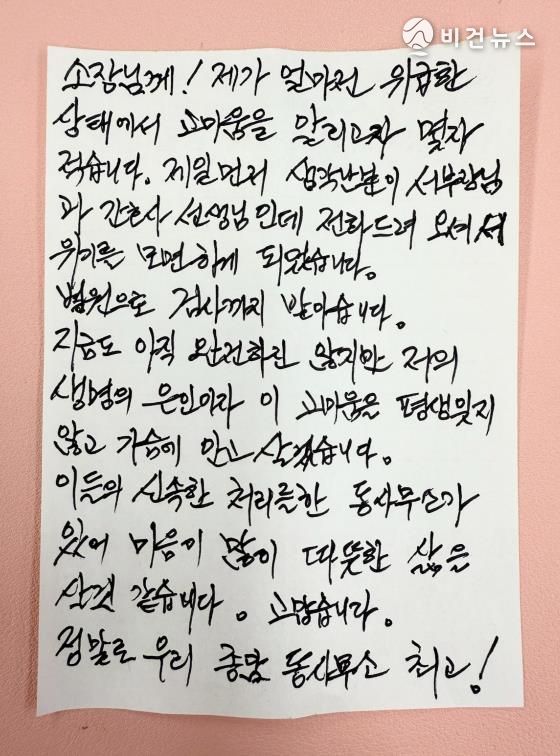 비건뉴스
소장님께! 제가 얼마전 위급한
상태에서 고마움을 알리고자 몇자
적습니다. 제일먼저 생각난분이 서부장님
과 간호사 선생님인데 전화드려 오셔서
위기를 모면하게 되었습니다.
병원으로 검사까지 받아습니다.
지금도 아직 완전하진 않지만 저의
생명의 은인이라 이 고마움을 평생잊지
않고 가슴에 안고 살겠습니다.
이들의 신속한 처리를한 동사무소가
있어 마음이 많이 따뜻한 삶을
산것 같습니다. 고맙습니다.
정말로 우리 종암 동사무소 최고!